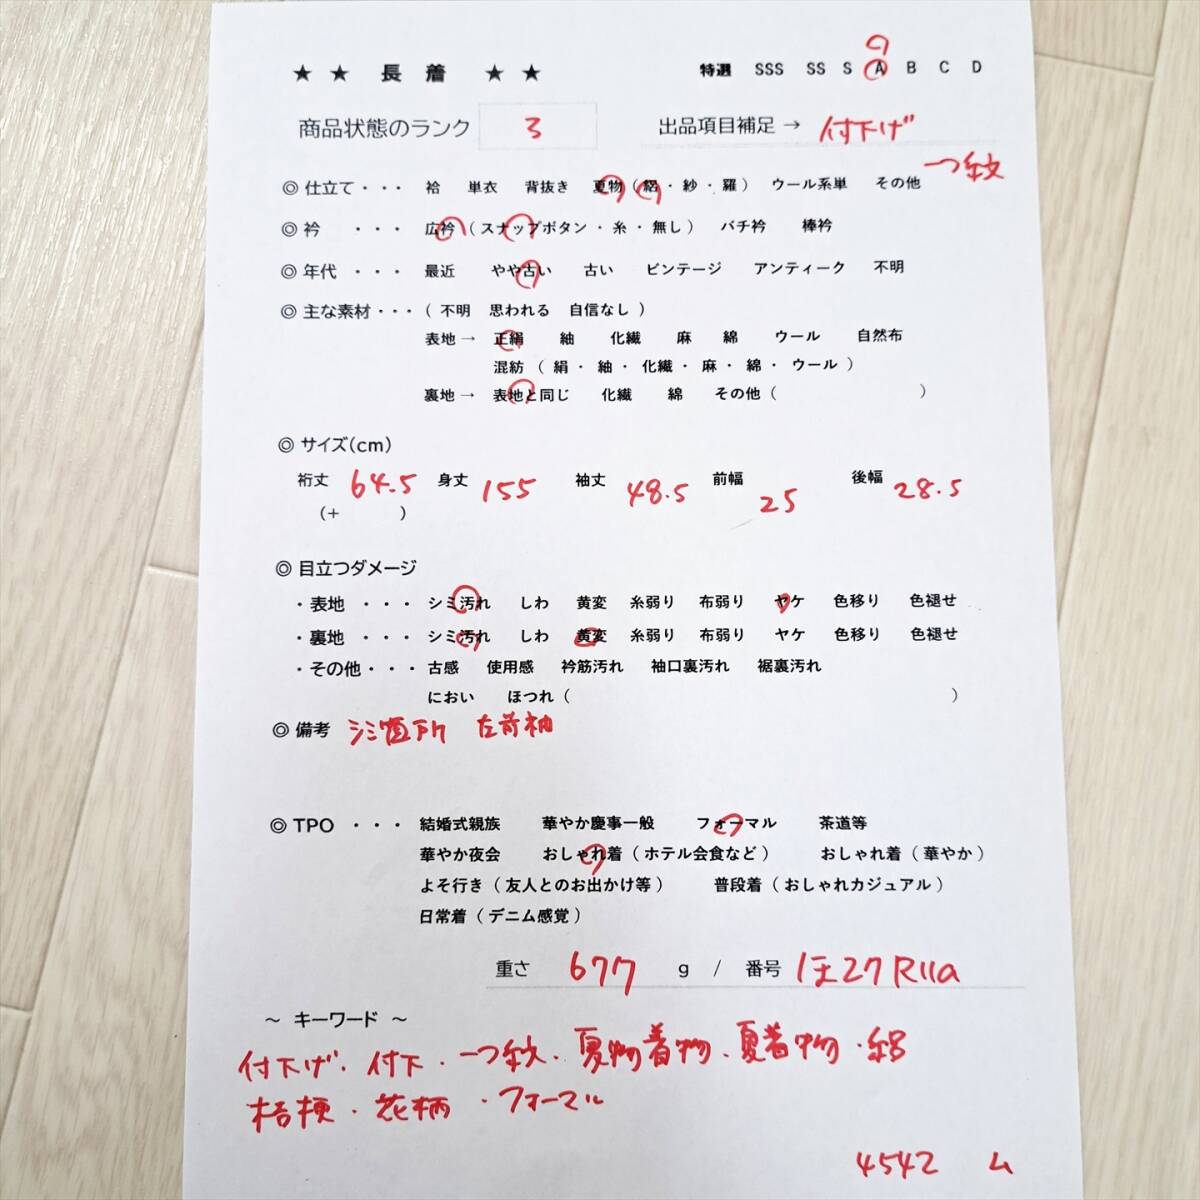 ★ ★ 長 着 ★ ★ 特選 SSS SS S A B C D
商品状態のランク 3 出品項目補足 → 付下げ
一つ紋
◎ 仕立て ・・・ 袷 単衣 背抜き 夏物 ( 絽 ・ 紗 ・ 羅 ) ウール系単 その他
◎ 衿 ・・・ 広衿 ( スナップボタン ・ 糸 ・ 無し ) バチ衿 棒衿
◎ 年代 ・・・ 最近 やや古い 古い ビンテージ アンティーク 不明
◎ 主な素材 ・・・ ( 不明 思われる 自信なし )
表地 → 正絹 紬 化繊 麻 綿 ウール 自然布
混紡 ( 絹 ・ 紬 ・ 化繊 ・ 麻 ・ 綿 ・ ウール )
裏地 → 表地と同じ 化繊 綿 その他 ( )
◎ サイズ(cm)
裄丈 64.5 身丈 155 袖丈 48.5 前幅 25 後幅 28.5
(+ )
◎ 目立つダメージ
・ 表地 ・・・ シミ汚れ しわ 黄変 糸弱り 布弱り ヤケ 色移り 色褪せ
・ 裏地 ・・・ シミ汚れ しわ 黄変 糸弱り 布弱り ヤケ 色移り 色褪せ
・ その他 ・・・ 古感 使用感 衿筋汚れ 袖口裏汚れ 裾裏汚れ
におい ほつれ ( )
◎ 備考 シミ箇所 左前袖
◎ TPO ・・・ 結婚式親族 華やか慶事一般 フォーマル 茶道等
華やか夜会 おしゃれ着 ( ホテル会食など ) おしゃれ着 ( 華やか )
よそ行き ( 友人とのお出かけ等 ) 普段着 ( おしゃれカジュアル )
日常着 ( デニム感覚 )
重さ 677 g / 番号 ほ27R11a
～ キーワード ～
付下げ・付下・一つ紋・夏物着物・夏着物・絽
桔梗・花柄・フォーマル
4542 ム